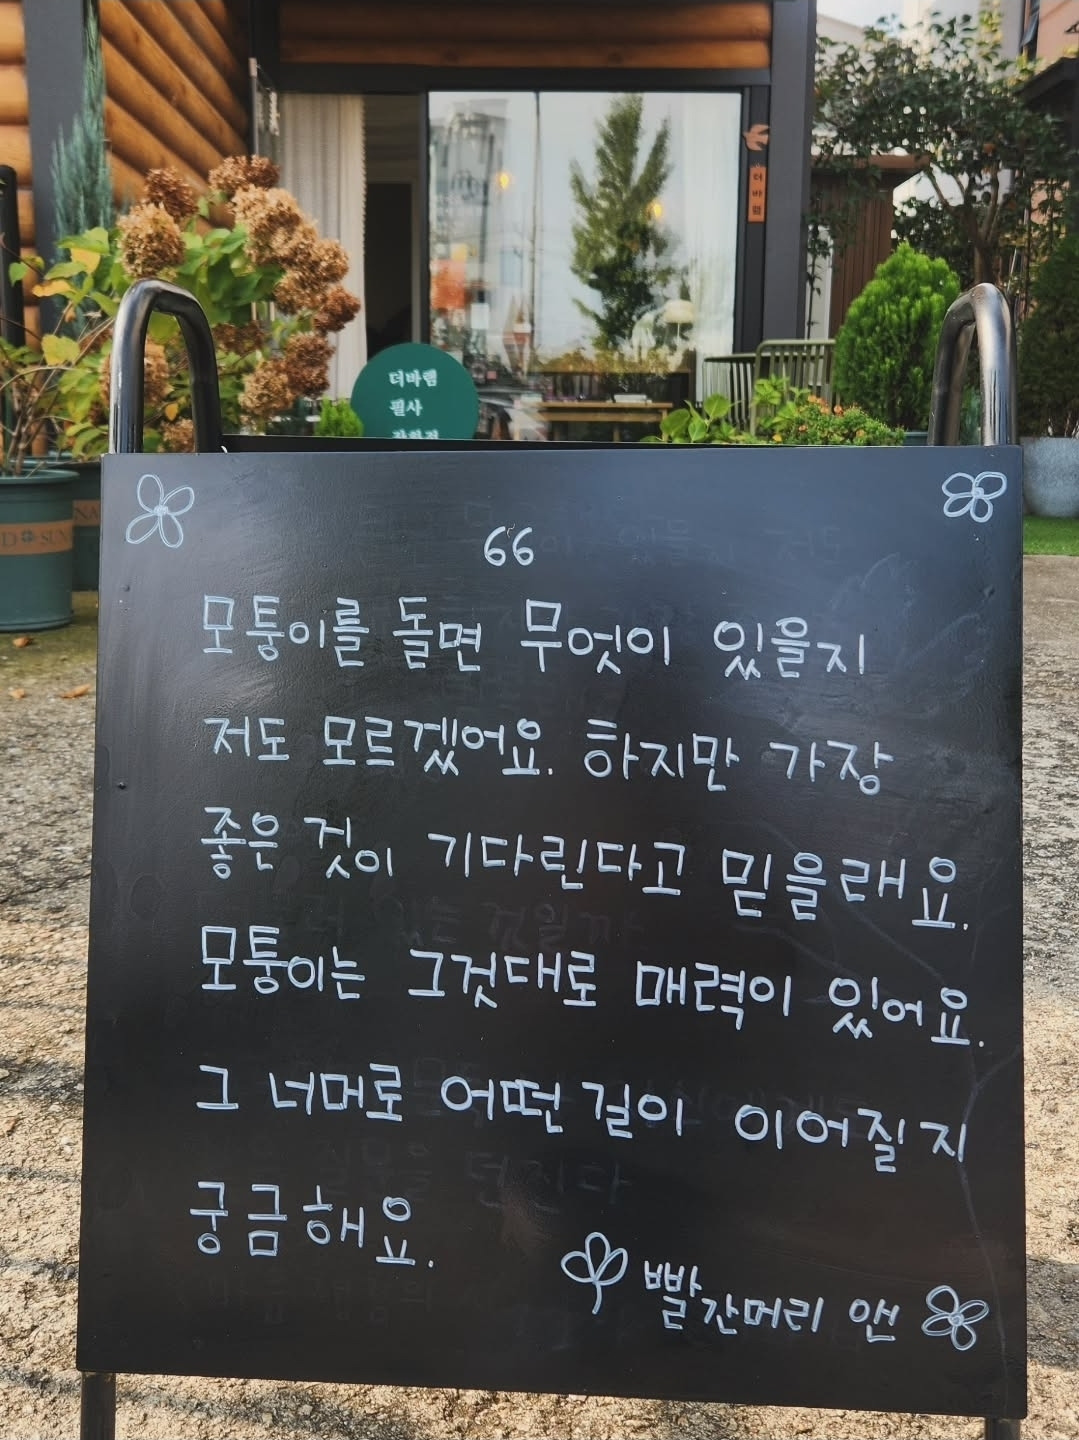 더바램
더바램
필사
66
모퉁이를 돌면 무엇이 있을지
저도 모르겠어요. 하지만 가장
좋은 것이 기다린다고 믿을래요.
모퉁이는 그것대로 매력이 있어요.
그 너머로 어떤 길이 이어질지
궁금해요.
빨간머리 앤